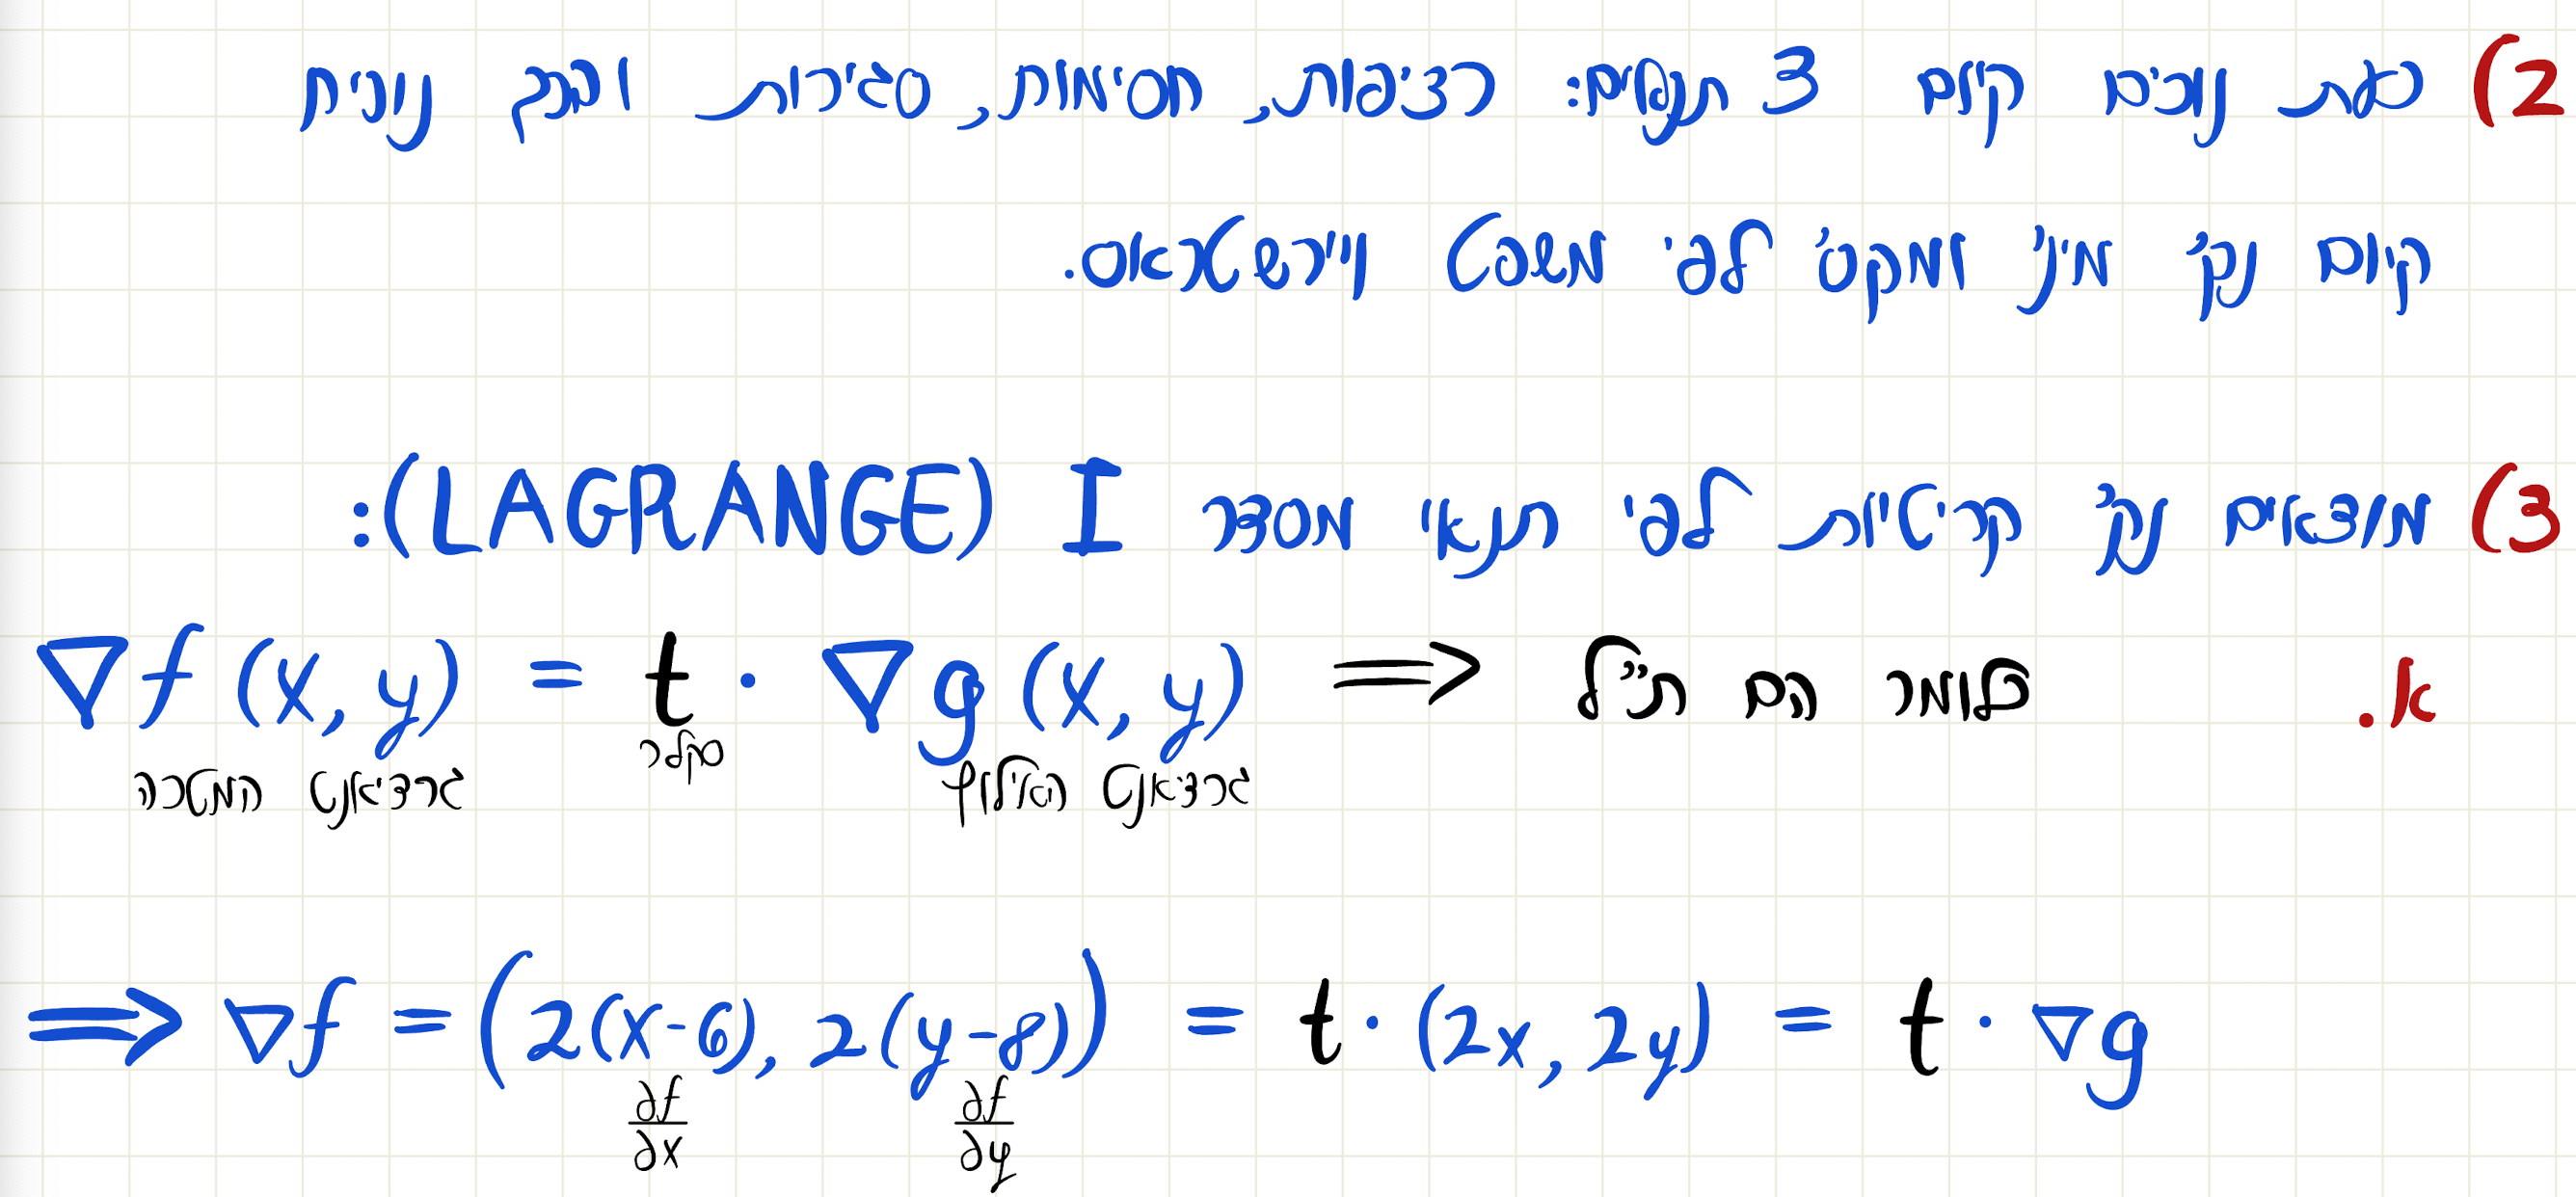 2) כעת נוכיח קיום 3 תנאים: רציפות, חסימות, סגירות ובכך נוכיח
קיום נק' מינ' ומקס' לפי משפט ויירשטראס.
3) מוצאים נק' קריטיות לפי תנאי מסדר I (LAGRANGE):
א. ∇f(x, y) = t · ∇g(x, y) ⟹ כלומר הם ת"ל
גרדיאנט המטרה סקלר גרדיאנט האילוץ
⟹ ∇f = (2(x-6), 2(y-8)) = t · (2x, 2y) = t · ∇g
∂f/∂x ∂f/∂y